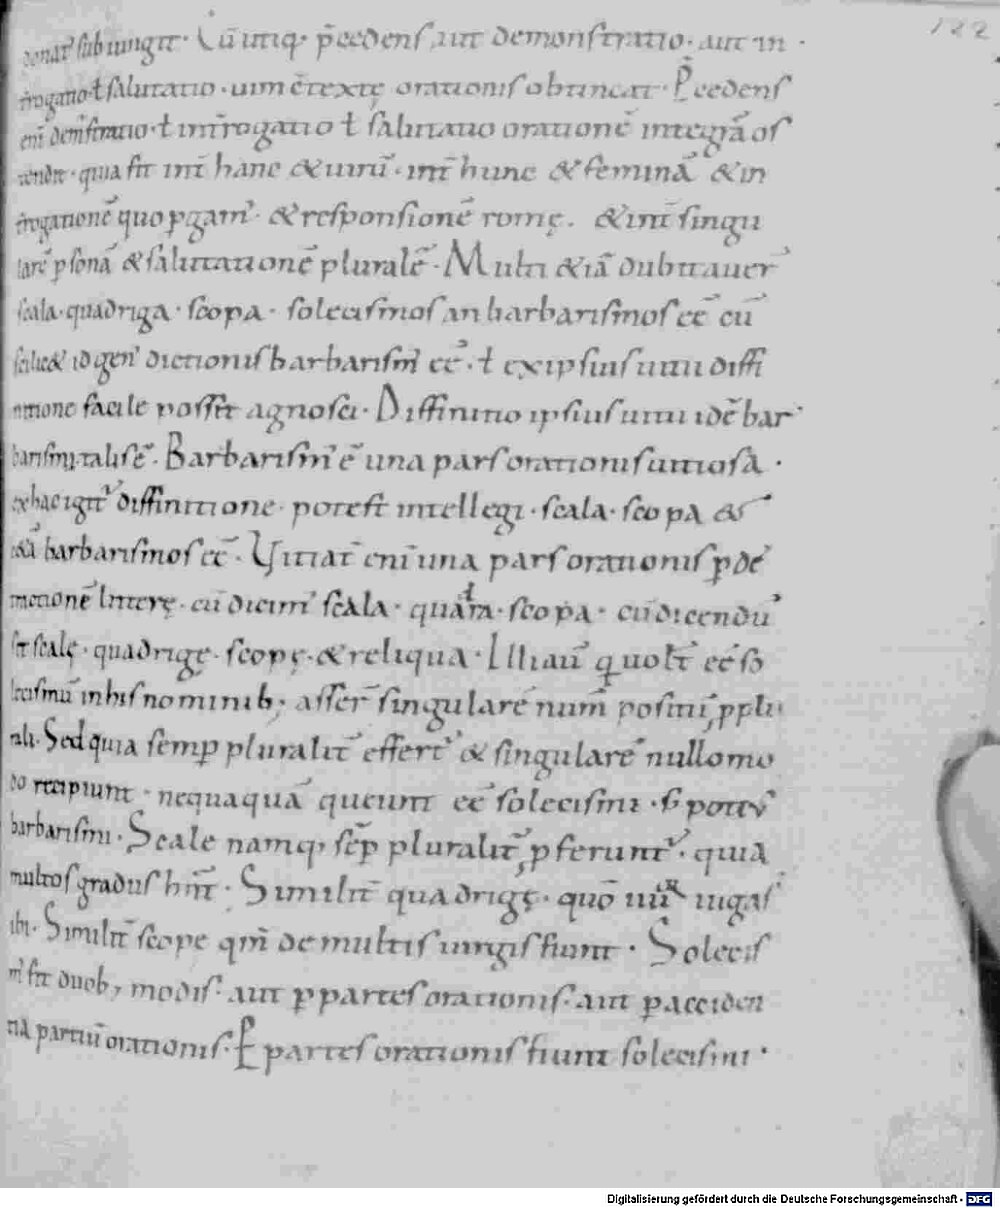 122
donat᷒ subiungit · Cū utiq; p̄cedens aut demonstratio · aut in ·
t̄rogatio ł salutatio · uim c̄textę orationis obtineat · P̄cedens
eni᷒ dem̄stratio · ł int̄rogatio ł salutatio orationē integrā os
tendit · quia fit int̄ hanc & uirū · int̄ hunc & feminā & in
t̄rogationē quo pergam᷒ · & responsionē romę . & int̄ singu
larē ꝑsonā & salutationē pluralē · Multi &iā dubitauer᷒
scala · quadriga · scopa · solecismos an barbarismos eē cū
scilic& id gen᷒ dictionis barbarism᷒ eē · ł ex ipsius uitii diffi
nitione facile possit agnosci · Diffinitio ipsius uitii idē bar
barismi · talis ē · Barbarism᷒ ē una pars orationis uitiosa ·
ex hac igit᷒ diffinitione · potest intellegi · scala · scopa &
barbarismos eē · Vitiat᷒ eni᷒ una pars orationis ꝑ de
tractionē litterę · cū dicim᷒ scala · quadra · scopa · cū dicendū
sit scalę · quadrigę · scopę · & reliqua · Illi aū q uolt̄ eē so
lecismū in his nominib; asser̄ singularē num̄ positū, p pli
rali · Sed quia semꝑ pluralit̄ effert᷒ & singularē nullo mo
do recipiunt · nequaquā queunt eē solecismi · s; poti᷒
barbarismi · Scale namq; sēp pluralit̄, ꝓferunt᷒ · quia
multos gradus hn̄t · Similit̄ quadrigę · quō iiii iugas
ibi · Similit̄ scope qm̄ de multis uirgis fiunt · Solecis
m᷒ fit duob; modis · aut ꝑ partes orationis · aut ꝑ acciden
tia partiū orationis · Ꝑ partes orationis fiunt solecismi ·
Digitalisierung gefördert durch die Deutsche Forschungsgemeinschaft - DFG